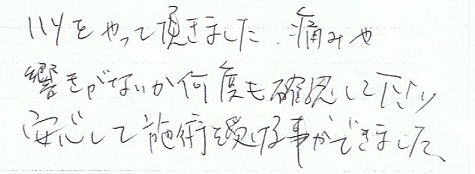 ハリをやって頂きました。痛みや
響きがないか何度も確認して下さり
安心して施術を受ける事ができました。